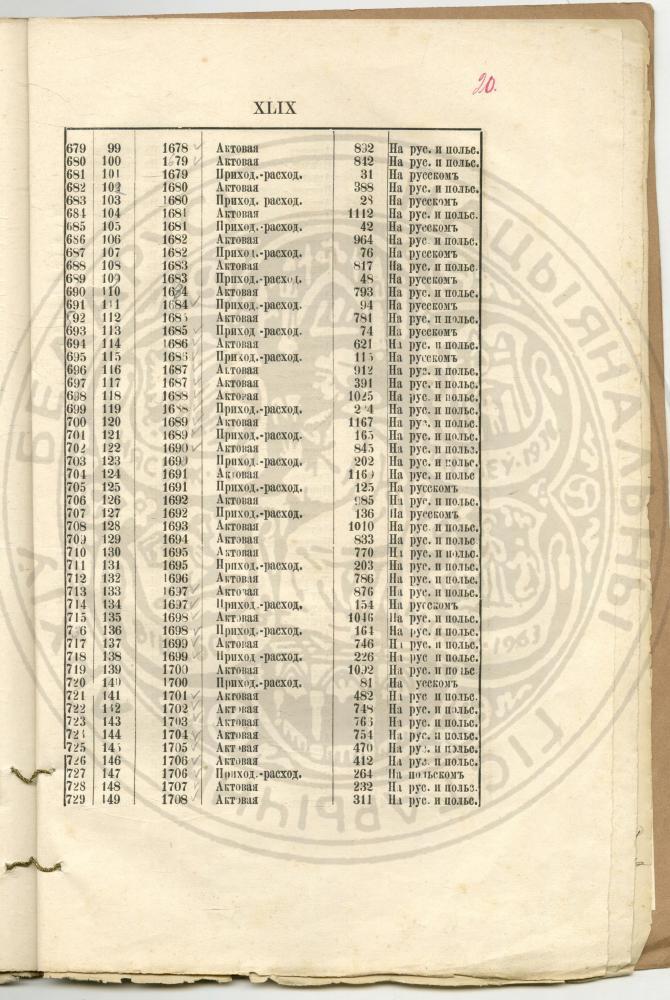 20.
XLIX
679 99 1678 Актовая 892 На рус. и польс.
680 100 1679 Актовая 842 На рус. и польс.
681 101 1679 Приход.-расход. 31 На русскомъ
682 102 1680 Актовая 388 На рус. и польс.
683 103 1680 Приход. расход. 28 На русскомъ
684 104 1681 Актовая 1112 На рус. и польс.
685 105 1681 Приход.-расход. 42 На русскомъ
686 106 1682 Актовая 964 На рус. и польс.
687 107 1682 Приход.-расход. 76 На русскомъ
688 108 1683 Актовая 817 На рус. и польс.
689 109 1683 Приход.-расход. 48 На русскомъ
690 110 1684 Актовая 793 На рус. и польс.
691 111 1684 Приход.-расход. 94 На русскомъ
692 112 1685 Актовая 781 На рус. и польс.
693 113 1685 Приход -расход. 74 На русскомъ
694 114 1686 Актовая 621 На рус. и польс.
695 115 1686 Приход.-расход. 115 На русскомъ
696 116 1687 Актовая 912 На рус. и польс.
697 117 1687 Актовая 391 На рус. и польс.
698 118 1688 Актовая 1025 На рус. и польс.
699 119 1688 Приход.-расход. На рус. и польс.
700 120 1689 Актовая 1167 На рус. и польс.
701 121 1689 Приход.-расход. 165 На рус. и польс.
702 122 1690 Актовая 845 На рус. и польз.
703 123 1690 Приход.-расход. 202 На рус. и польс.
704 124 1691 Актовая 1169 На рус. и польс
705 125 1691 Приход.-расход. 125 На русскомъ
706 126 1692 Актовая 985 На рус. и польс.
707 127 1692 Приход.-расход. 136 На русскомъ
708 128 1693 Актовая 1010 На рус. и польс.
709 129 1694 Актовая 833 На рус. и польс.
710 130 1695 Актовая 770 На рус. и польс.
711 131 1695 Приход.-расход. 203 На рус. и польс.
712 132 1696 Актовая 786 На рус. и польс.
713 133 1697 Актовая 876 На рус. и польс.
714 134 1697 Приход.-расход. 154 На русскомъ
715 135 1698 Актовая 1046 На рус. и польс.
716 136 1698 Приход.-расход. 164 На рус. и польс.
717 137 1699 Актовая 746 На рус. и польс.
718 138 1699 Приход.-расход. 226 На рус и польс.
719 139 1700 Актовая 1092 На рус. и польс
720 140 1700 Приход.-расход. 81 На усскомъ
721 141 1701 Актовая 482 На рус и польс.
722 142 1702 Актовая 748 На рус. и польс.
723 143 1703 Актовая 763 На рус. и польс.
724 144 1704 Актовая 754 На рус. и польс.
725 145 1705 Актовая 470 На рус. и польс.
726 146 1706 Актовая 412 На рус. и польс.
727 147 1706 Приход.-расход. 264 На польскомъ
728 148 1707 Актовая 232 На рус. и польз.
729 149 1708 Актовая 311 На рус. и польс.